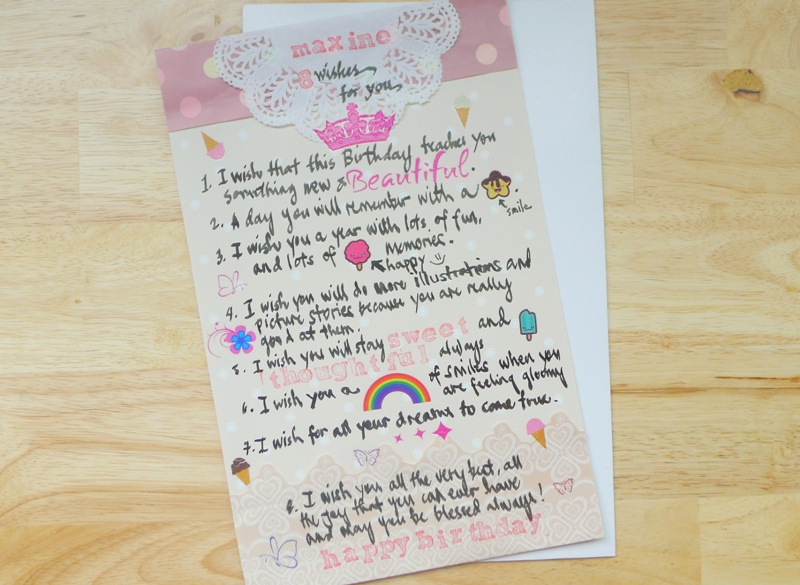 maxine
8 wishes
for you
1. I wish that this Birthday teaches you
something new & Beautiful.
2. A day you will remember with a .
smile
3. I wish you a year with lots of fun,
and lots of memories.
happy
4. I wish you will do more illustrations and
picture stories because you are really
good at them.
5. I wish you will stay sweet and
thoughtful always
6. I wish you a of smiles when you
are feeling gloomy
7. I wish for all your dreams to come true.
8. I wish you all the very best, all
the joy that you can ever have
and may you be blessed always!
happy birthday